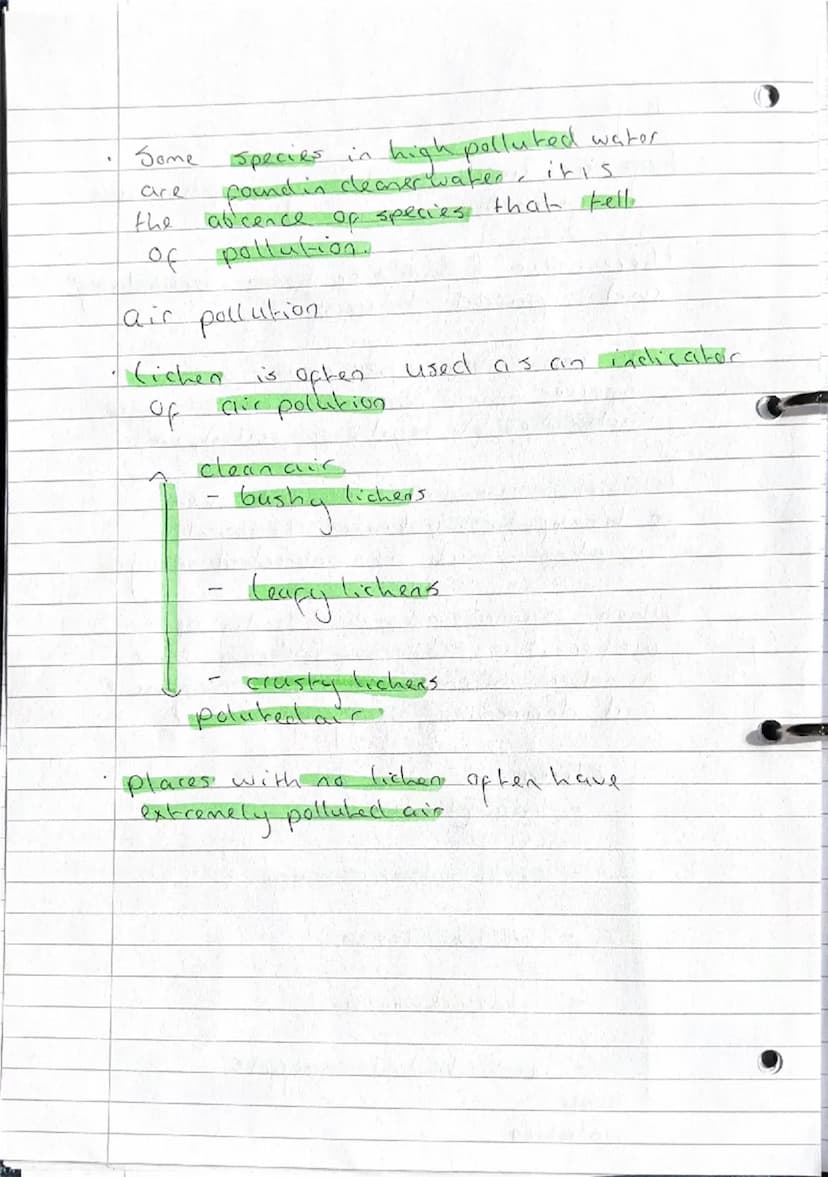 · Some species in high polluted water
are found in cleaner water, it is
the abcence of species that tell
of pollution.
air pollution
· lichen is often used as an indicator
of air pollution
clean air
- bushy lichens
- leafy lichens
- crusty lichens
poluted air
· places with no lichen often have
extremely polluted air